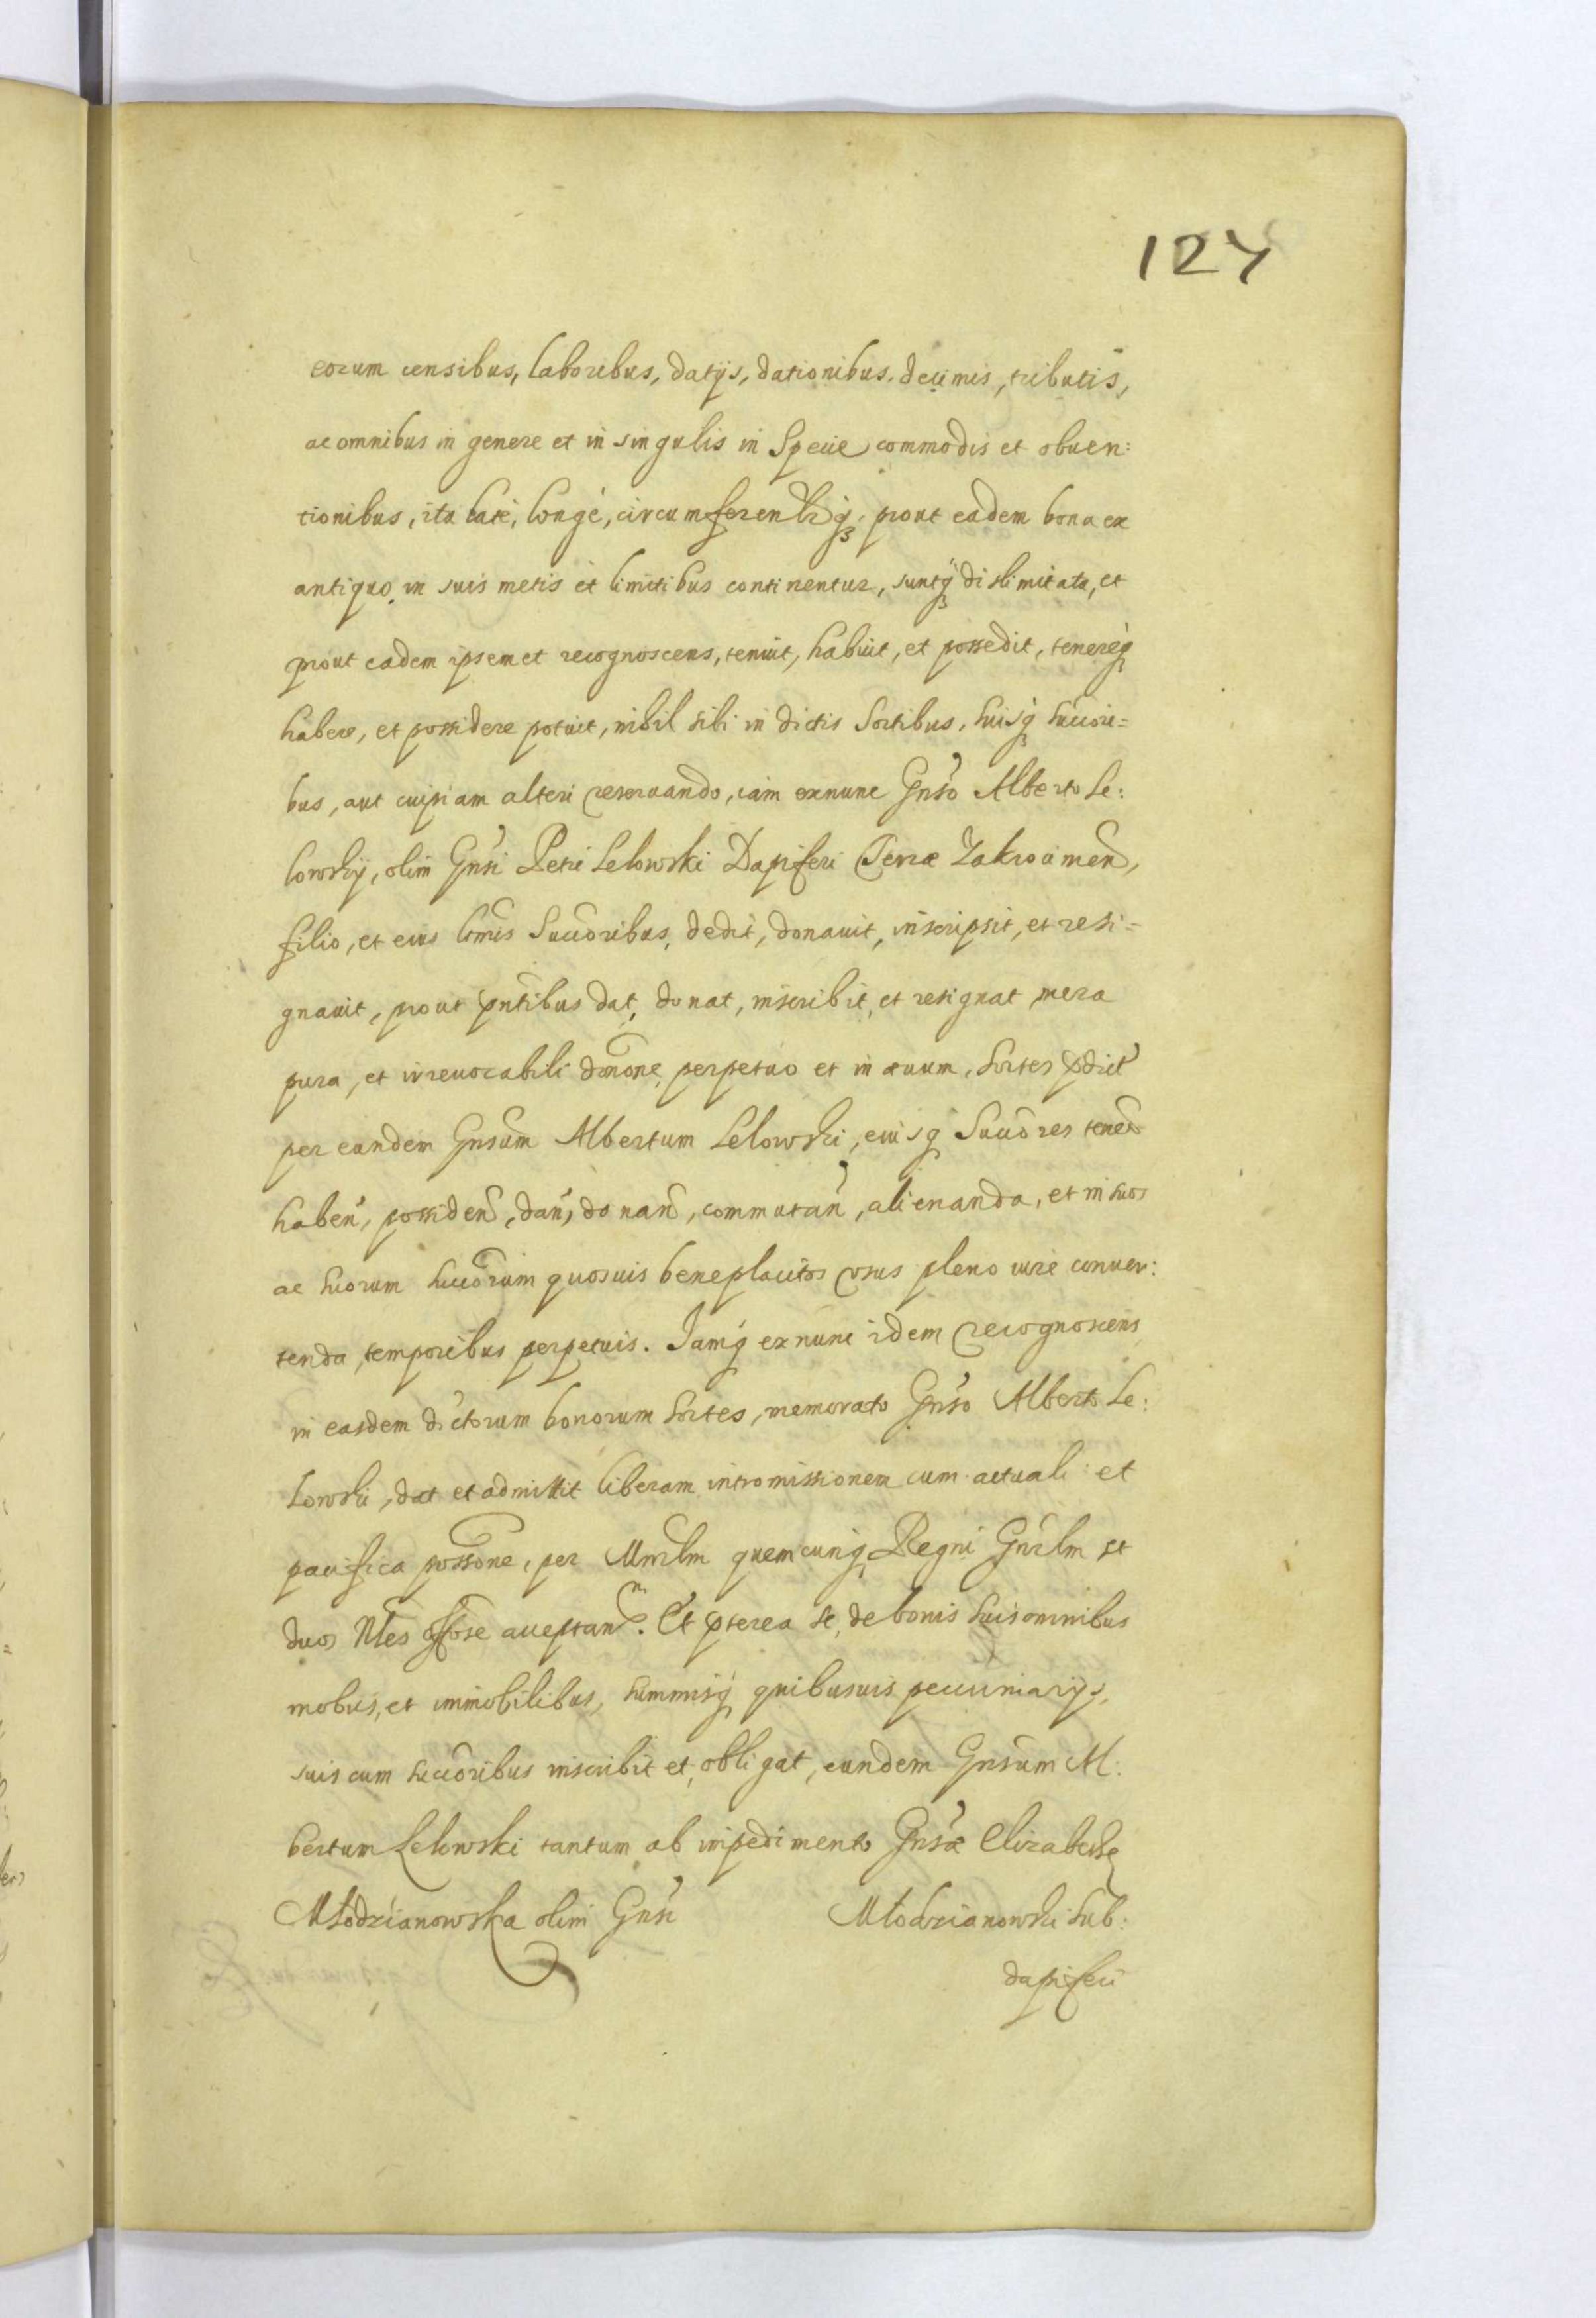 127
eorum censibus, laboribus, datijs, dationibus, decimis, tributis,
ac omnibus in genere et in singulis in Specie commodis et obuen:
tionibus, ita latè, longè, circumferentrq;, prout eadem bona ex
antiquo in suis metis et limitibus continentur, suntq; distlimitata, et
prout eadem ipsemet recognoscens, tenuit, habuit, et possedit, tenereq;
habere, et possidere potuit, nihil sibi in dictis Sortibus, suisq; succori=
bus, aut cuipiam alteri reseruando, iam exnunc Gnso Alberto Le:
lowskij, olim Gnsi Petri Lelowski Dapiferi Terræ Zakrocimen,
filio, et eius ltmis Succoribus, dedit, donauit, inscripsit, et resi=
gnauit, prout pntibus dat, donat, inscribit, et resignat mera
pura, et irreuocabili dnone, perpetuo et in æuum, Sortes pdict
per eundem Gnsum Albertum Lelowski, eiusq; Succores tenen
haben, possiden, dan, donan, commutan, alienanda, et in suos
ac suorum succorum quosuis beneplacitos usus pleno iure conuer:
tenda, temporibus perpetuis. Jamq; exnunc idem recognoscens
in easdem dictorum bonorum Sortes, memorato Gnso Alberto Le:
lowski, dat et admittit liberam intromissionem cum actuali et
pacifica possone, per Mnrlm quemcunq; Regni Gnrlm et
duos Nbles offose acceptan. Et pterea se, de bonis suis omnibus
mobus, et immobilibus, summisq; quibusuis pecuniarijs,
suis cum succoribus inscribit et obligat, eundem Gnsum Al:
bertum Lelowski tantum ab impedimento Gnsæ Elizabethe
Młodzianowska olim Gnsi Młodzianowski sub:
dapiferi